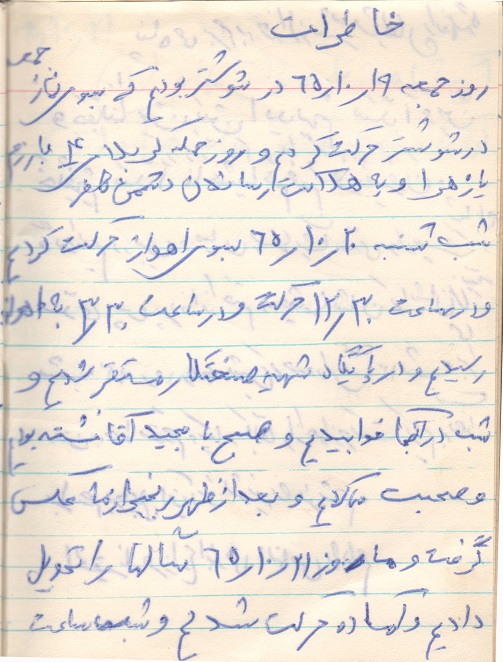 خاطرات
روز جمعه ۱۹ر۱۰ر۶۵ در شوشتر بودیم که بسوی نماز جمعه
در شوشتر حرکت کردیم و روز حمله کربلای ۴ با رمز
یا زهرا و به هلاکت رساندن دشمن کافر
شب شنبه ۲۰ر۱۰ر۶۵ بسوی اهواز حرکت کردیم
و در ساعت ۳۰ر۱۲ حرکت و در ساعت ۳۰ر۳ به اهواز
رسیدیم و در پایگاه شهید مستقر شدیم و
شب در آنجا خوابیدیم و صبح با مجید آقا نشسته بودیم
و صحبت میکردیم و بعد از ظهر از ما عکس
گرفت و ما روز ۲۱ر۱۰ر۶۵ را تحویل
دادیم و آماده حرکت شدیم و شب ساعت